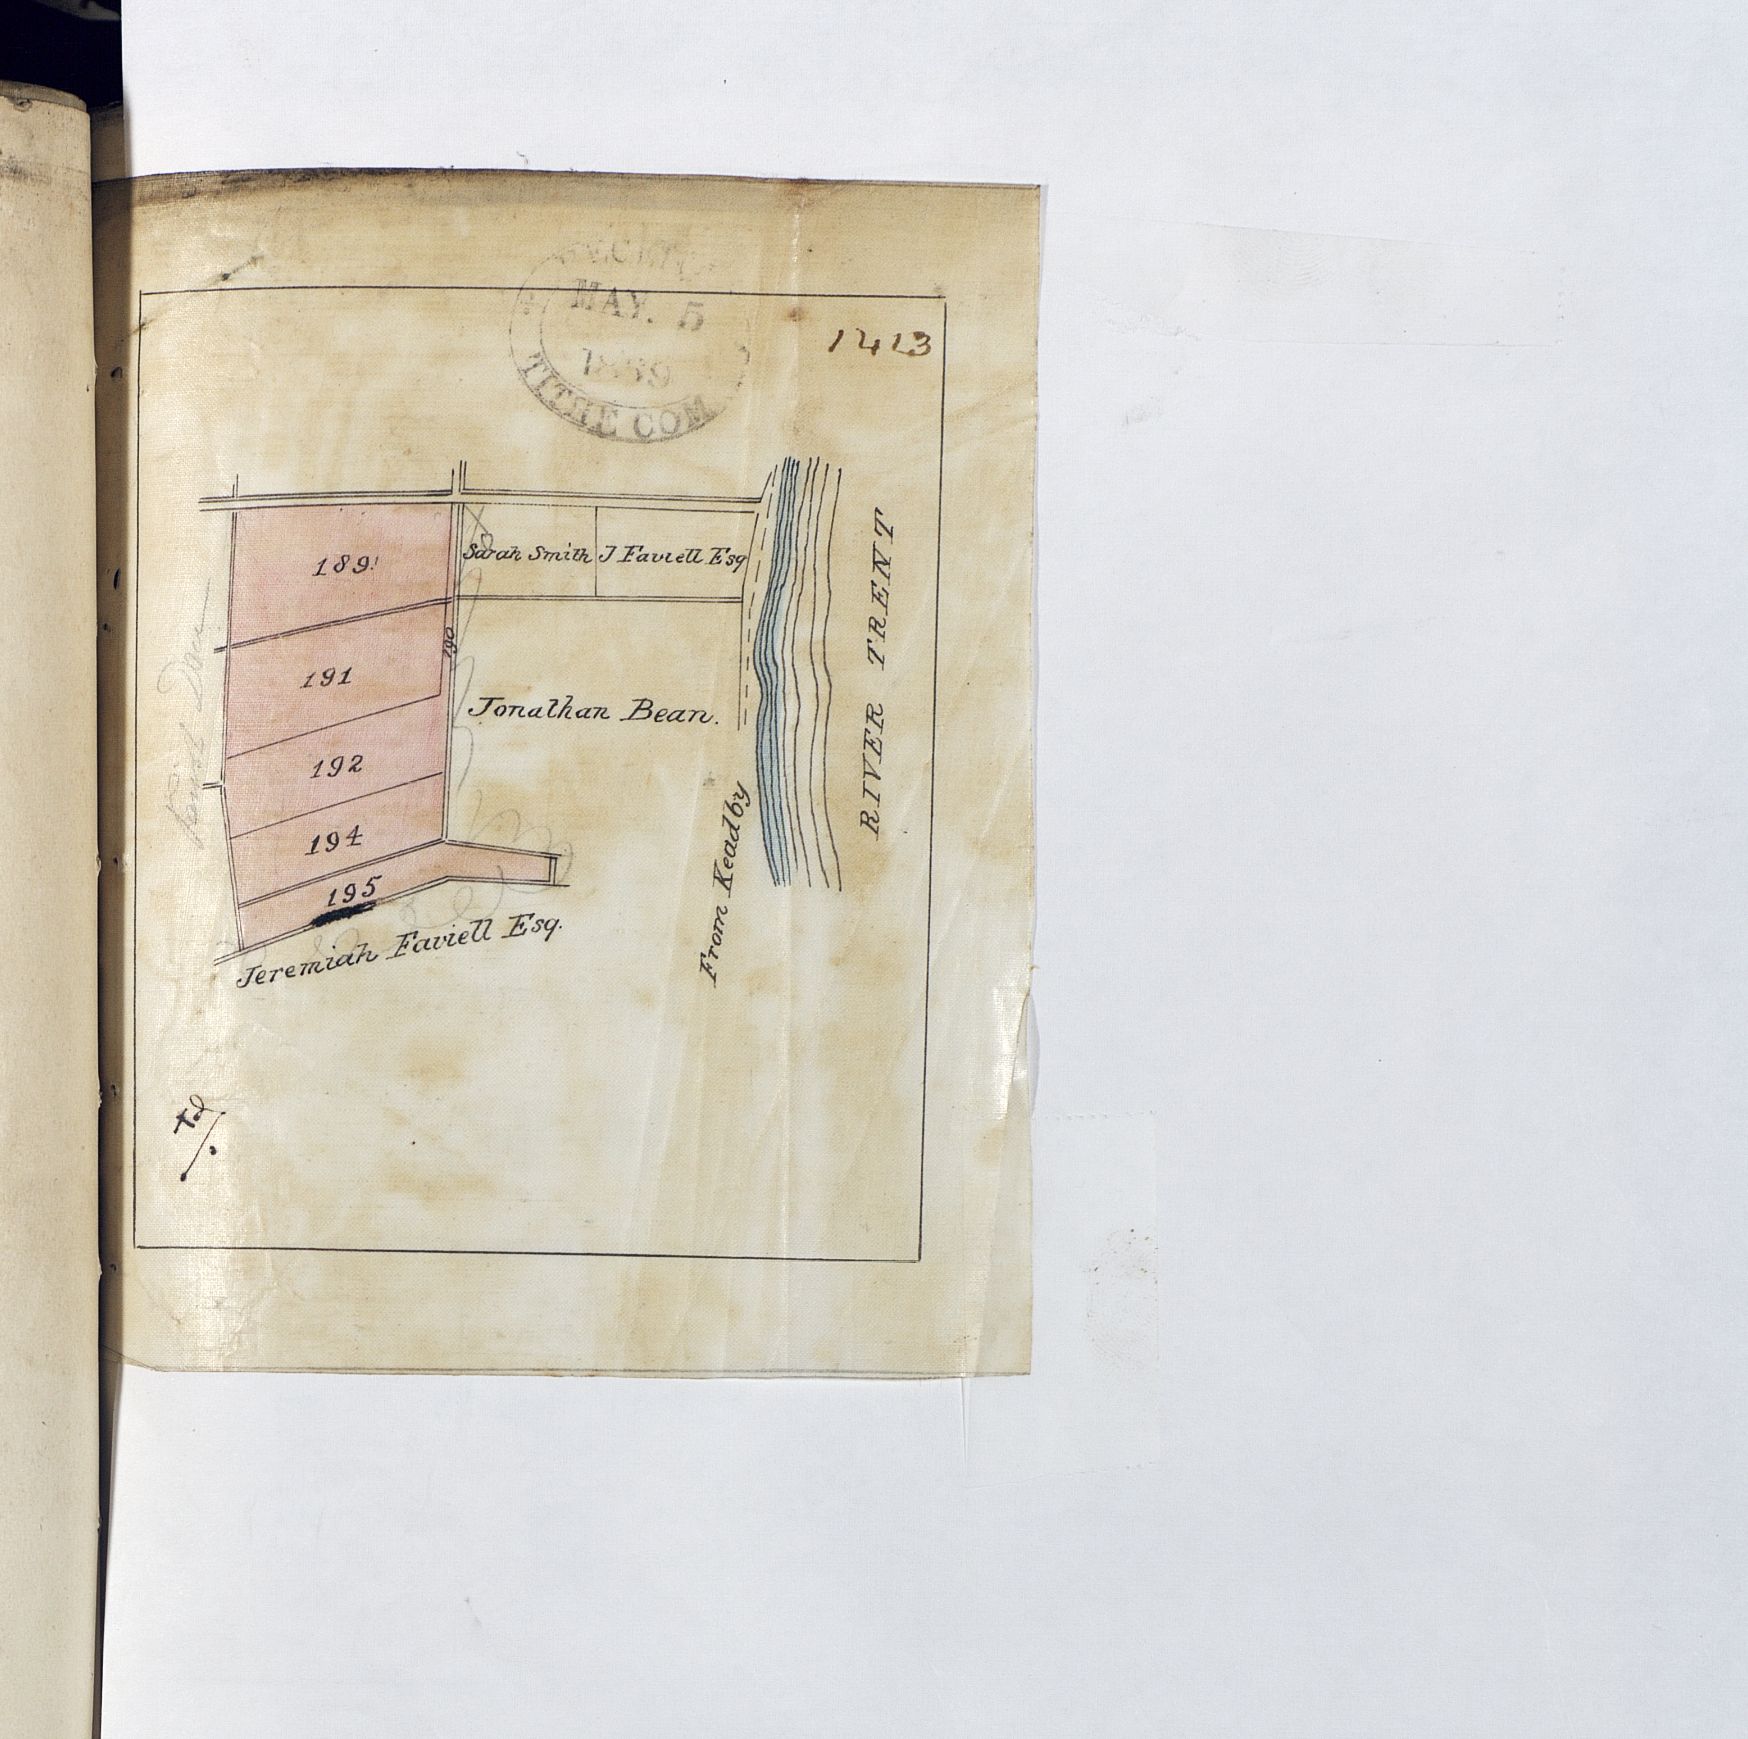 MAY. 5
TITHE COM
1413
189
Sarah Smith
J Faviell Esq
190
191
Jonathan Bean.
192
194
195
Jeremiah Faviell Esq.
From Keadby
RIVER TRENT